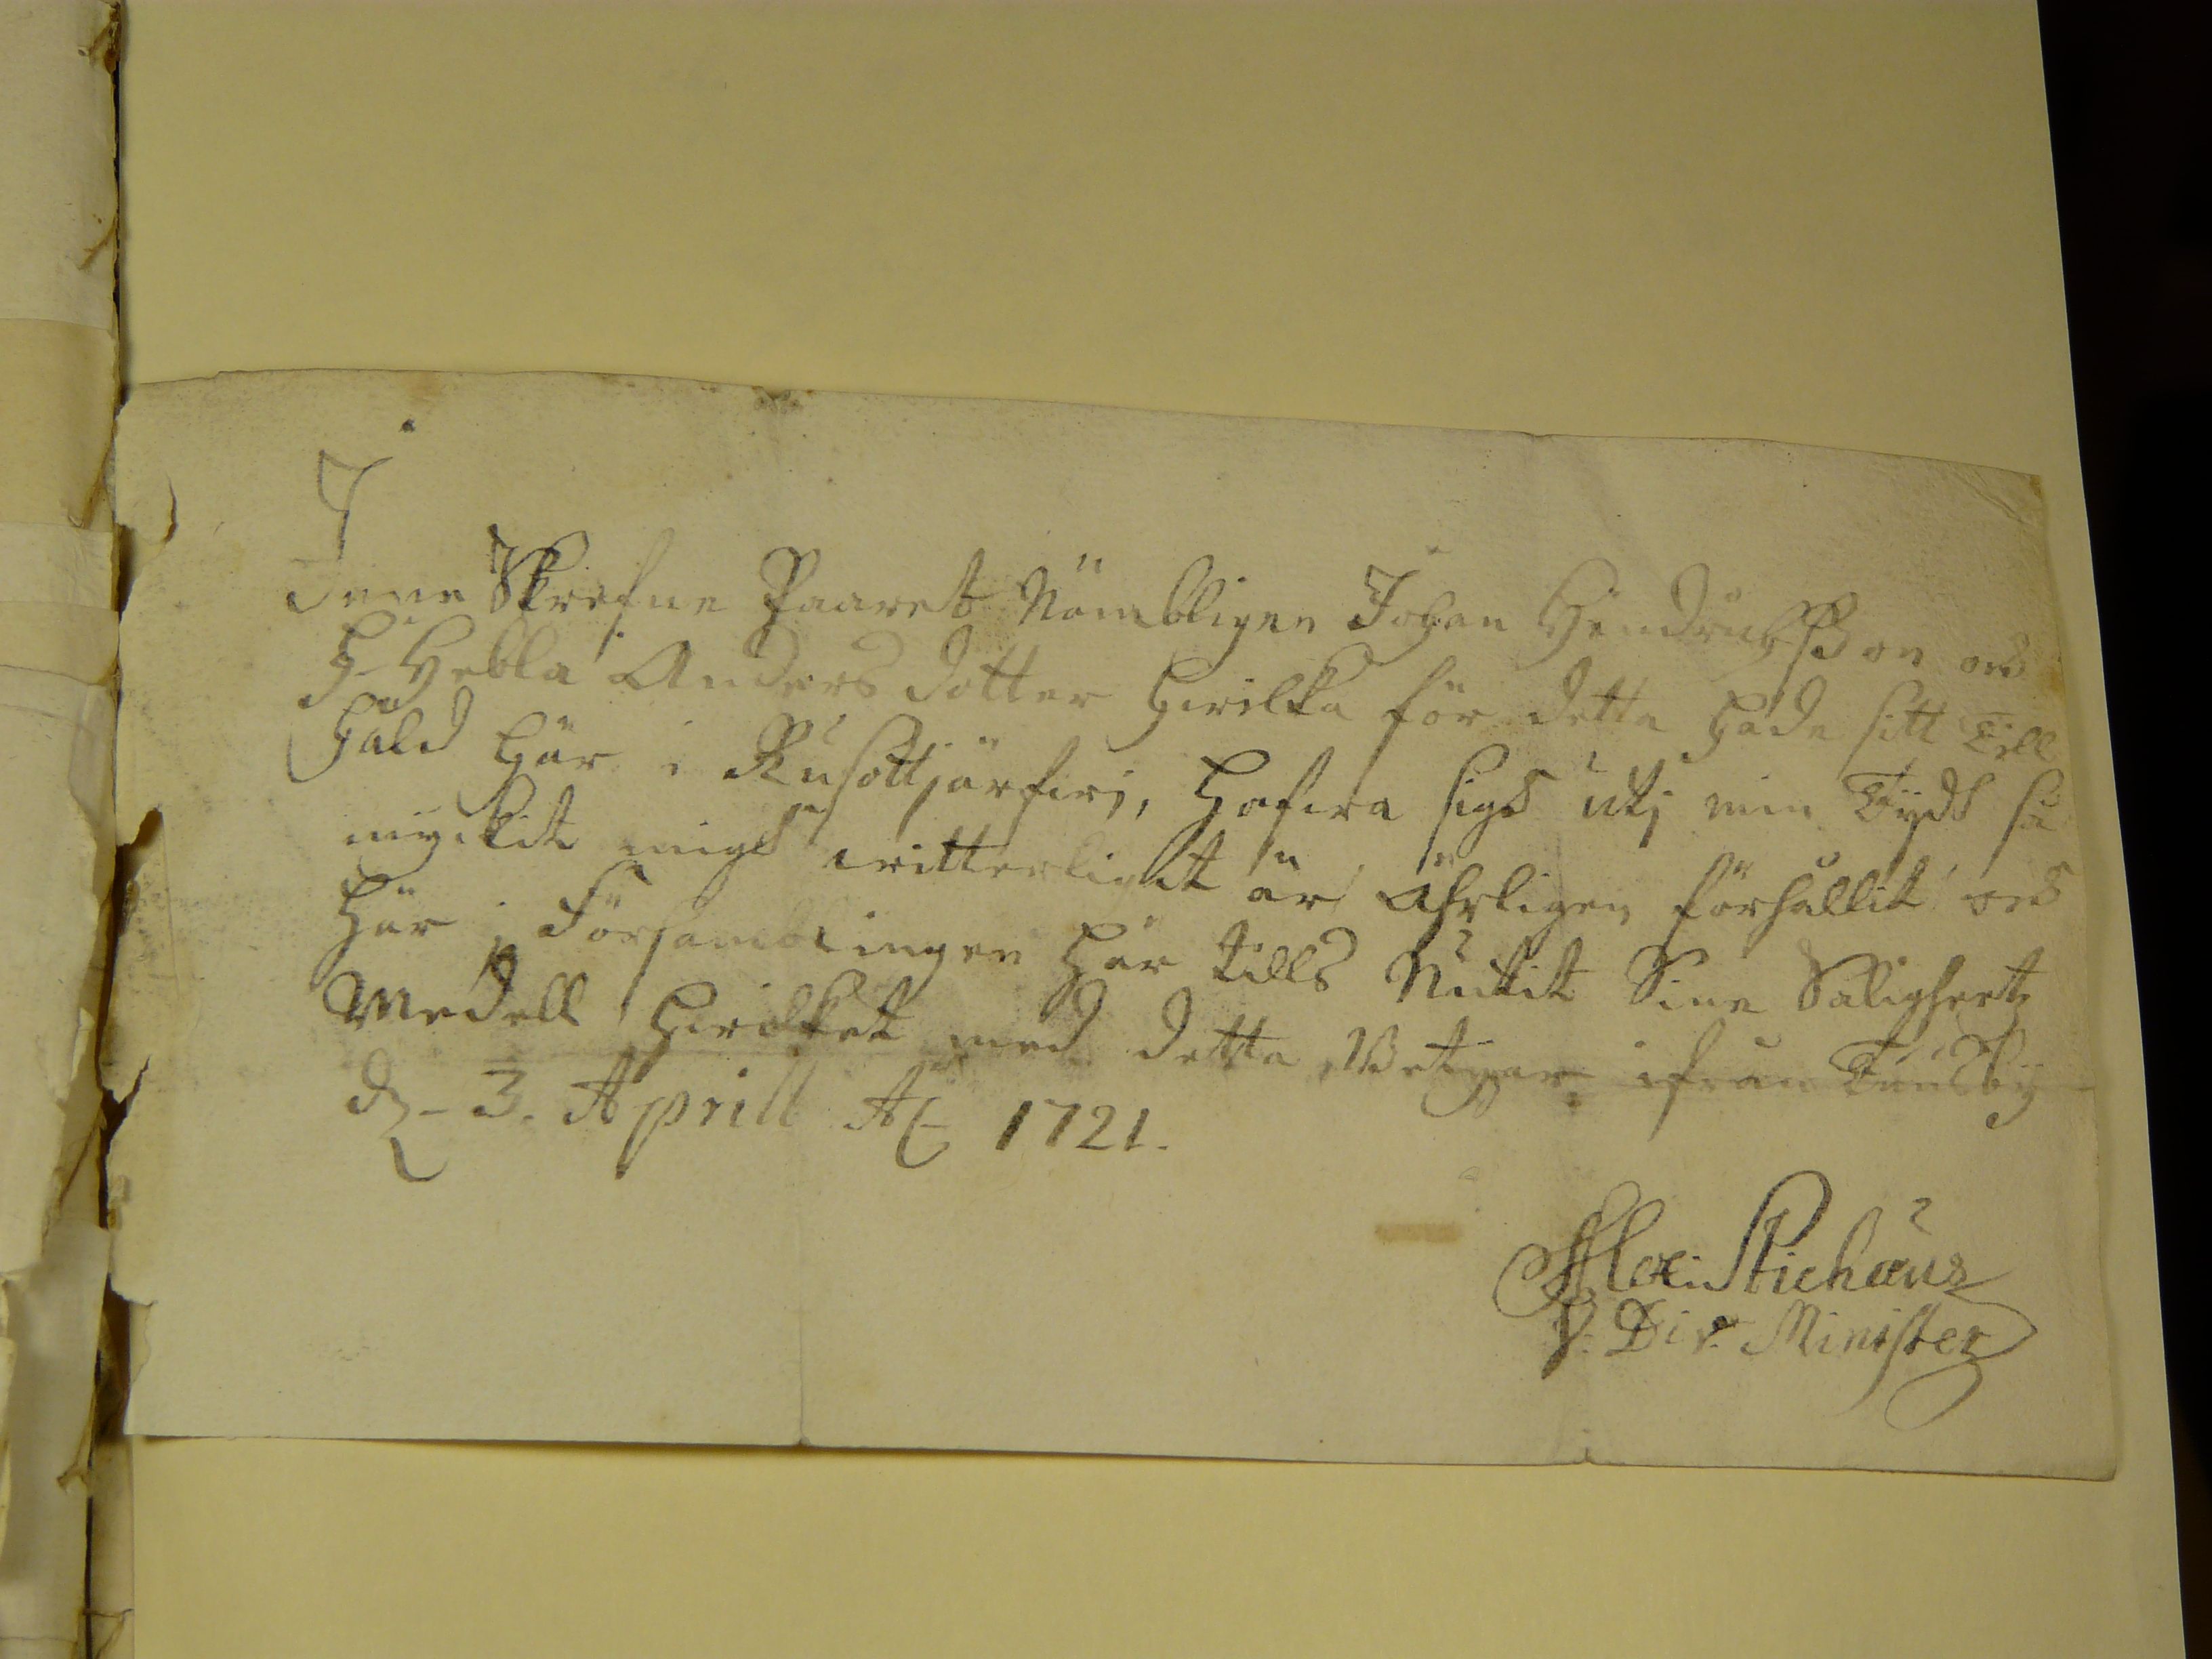 Inne Skrefne Paaret Nömbligen Johan Hindrichsson och
H. Hebla Anders dotter hwilka för detta hade sitt Till
håld här i Rusottjärfwi, hafwa sigh utj min Tydh så
myckit migh witterligit är ährligen förhållit och
här i Församblingen här tills Nutit Sine Saligheetz
Medell hwilket med detta Betygar ifrån Tuusby
dz 3. Aprill A 1721.
Alex. Stichæus
V. Div. Minister